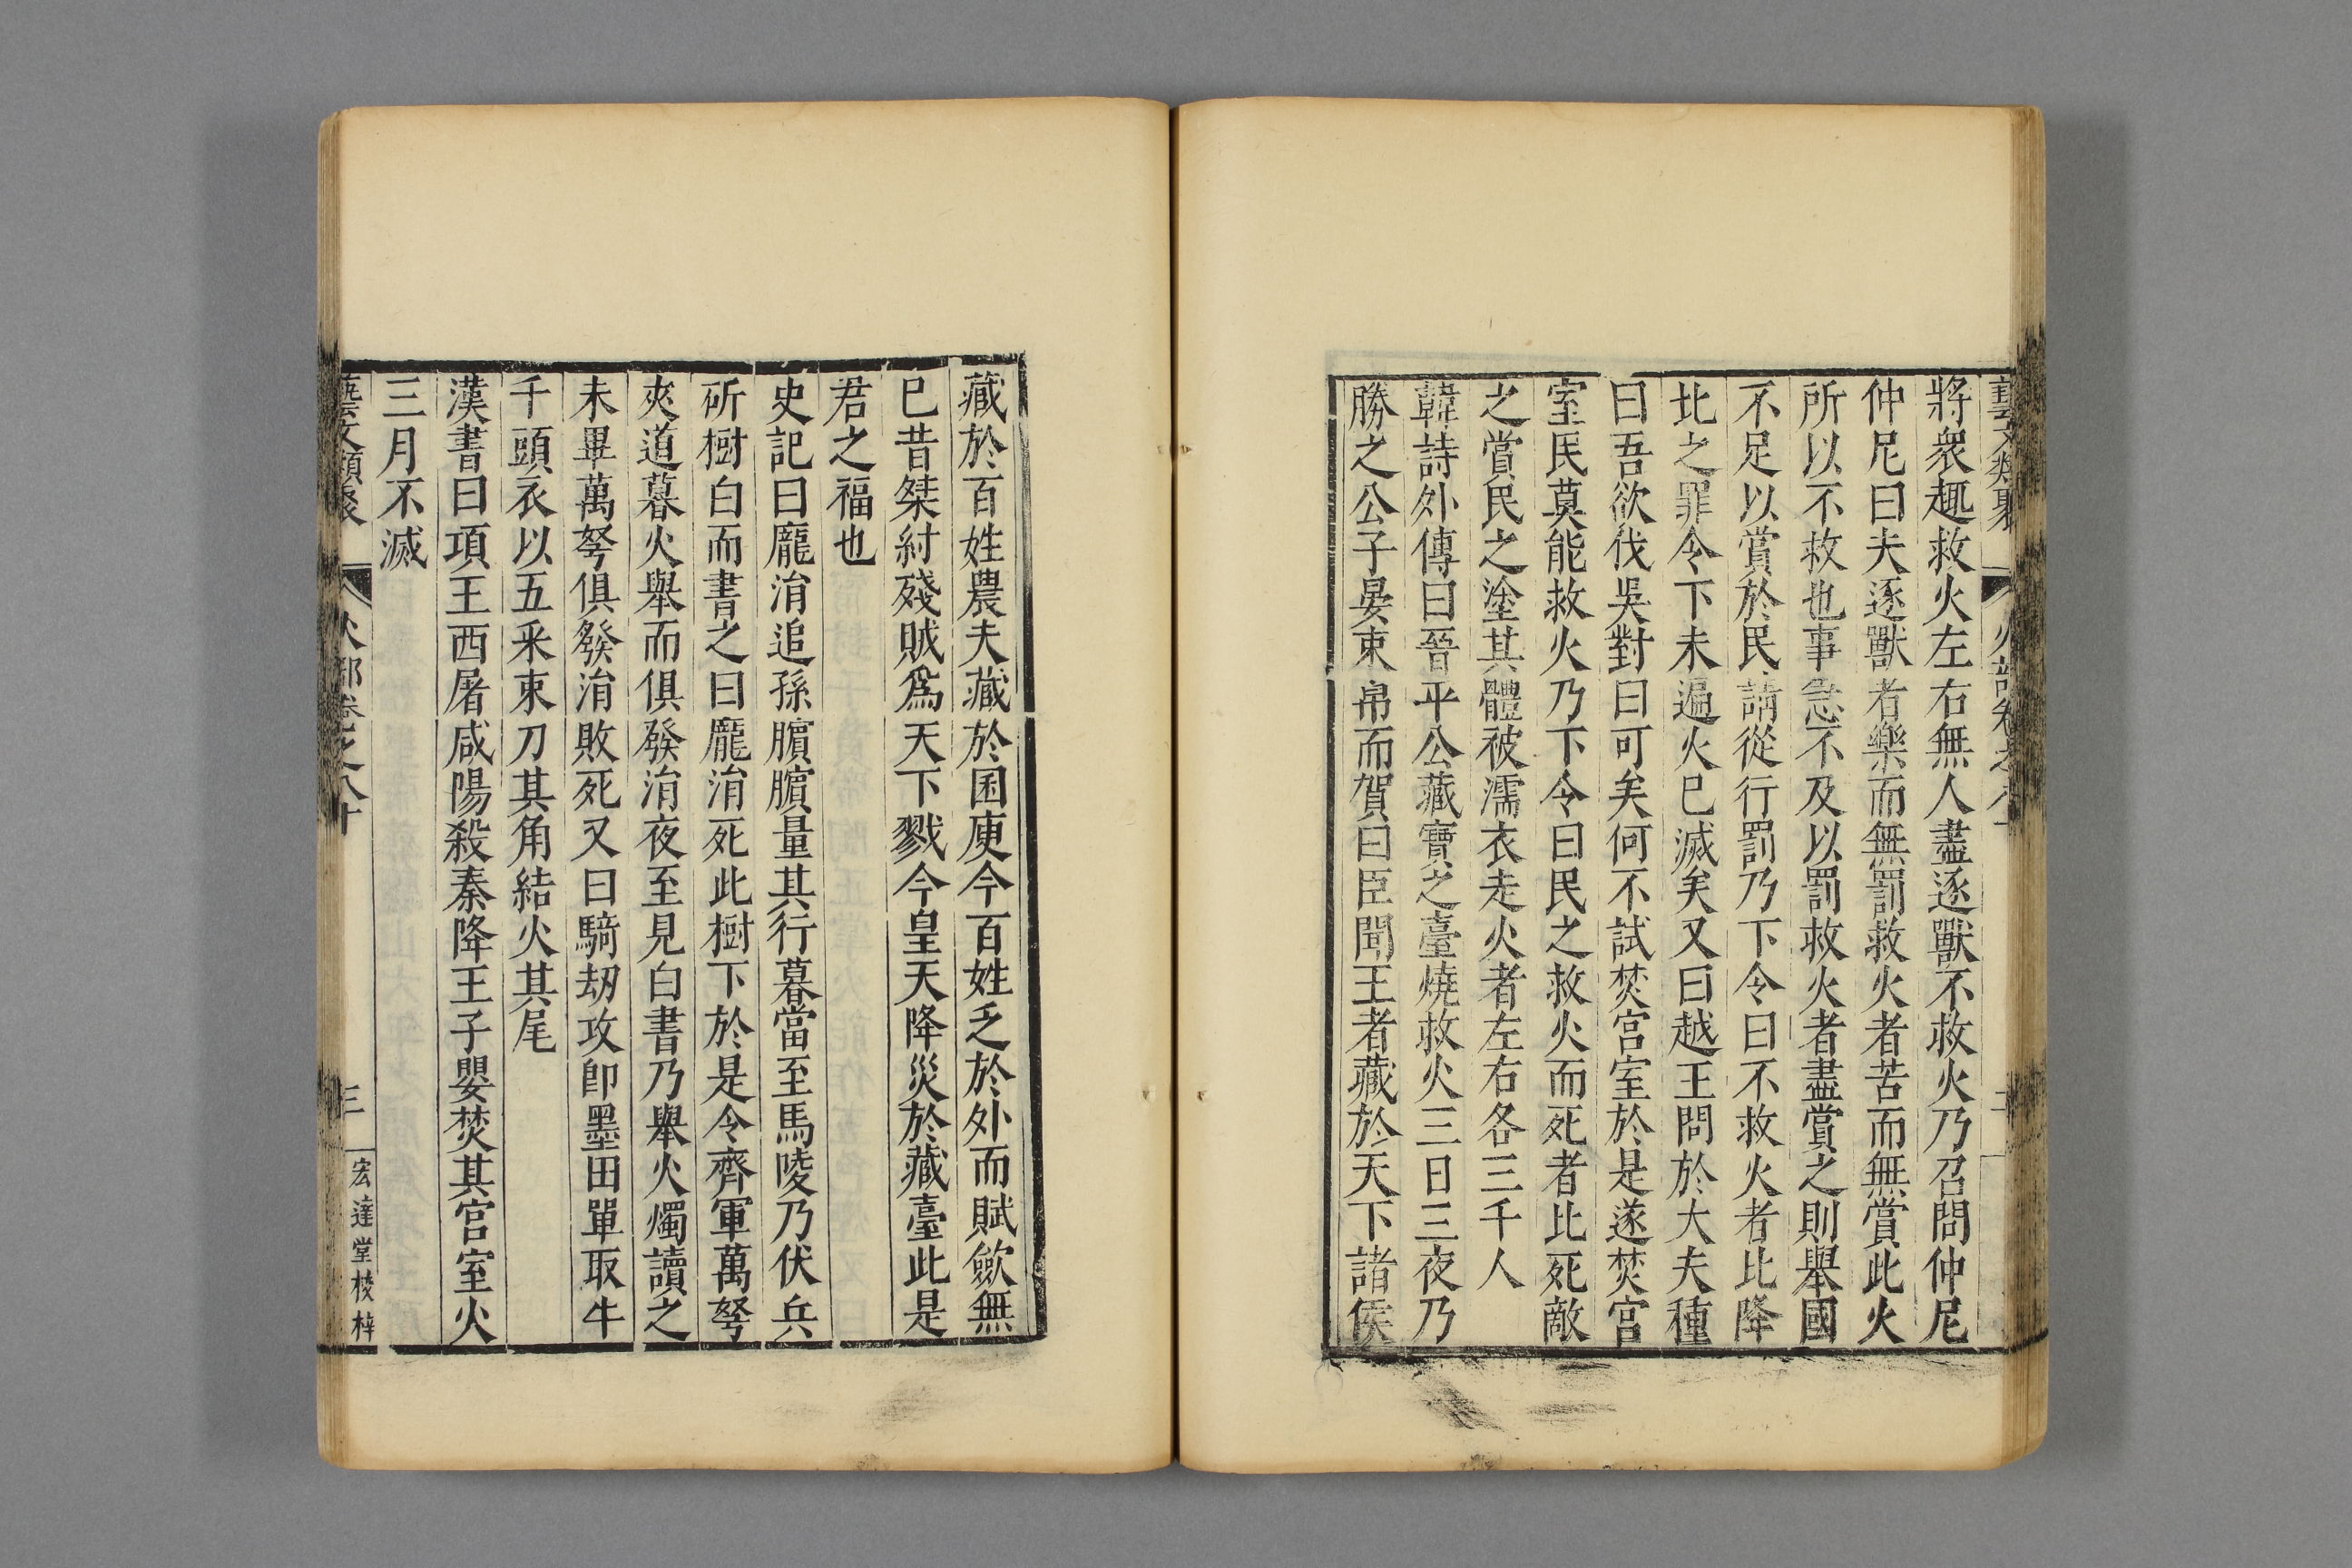 藝文類聚 火部卷之八十 二
將衆趣救火左右無人盡逐獸不救火乃召問仲尼
仲尼曰夫逐獸者樂而無罰救火者苦而無賞此火
所以不救也事急不及以罰救火者盡賞之則舉國
不足以賞於民請從行罰乃下令曰不救火者比降
北之罪令下未遍火已滅矣又曰越王問於大夫種
曰吾欲伐吳對曰可矣何不試焚宮室於是遂焚宮
室民莫能救火乃下令曰民之救火而死者比死敵
之賞民之塗其體被濡衣走火者左右各三千人
韓詩外傳曰晉平公藏寶之臺燒救火三日三夜乃
勝之公子晏束帛而賀曰臣聞王者藏於天下諸侯
藏於百姓農夫藏於囷庾今百姓乏於外而賦歛無
已昔桀紂殘賊爲天下戮今皇天降災於藏臺此是
君之福也
史記曰龐涓追孫臏臏量其行暮當至馬陵乃伏兵
斫樹白而書之曰龐涓死此樹下於是令齊軍萬弩
夾道暮火舉而俱發涓夜至見白書乃舉火燭讀之
未畢萬弩俱發涓敗死又曰騎劫攻卽墨田單取牛
千頭衣以五采束刀其角結火其尾
漢書曰項王西屠咸陽殺秦降王子嬰焚其宮室火
三月不滅
藝文類聚 火部卷之八十 三 宏達堂校梓